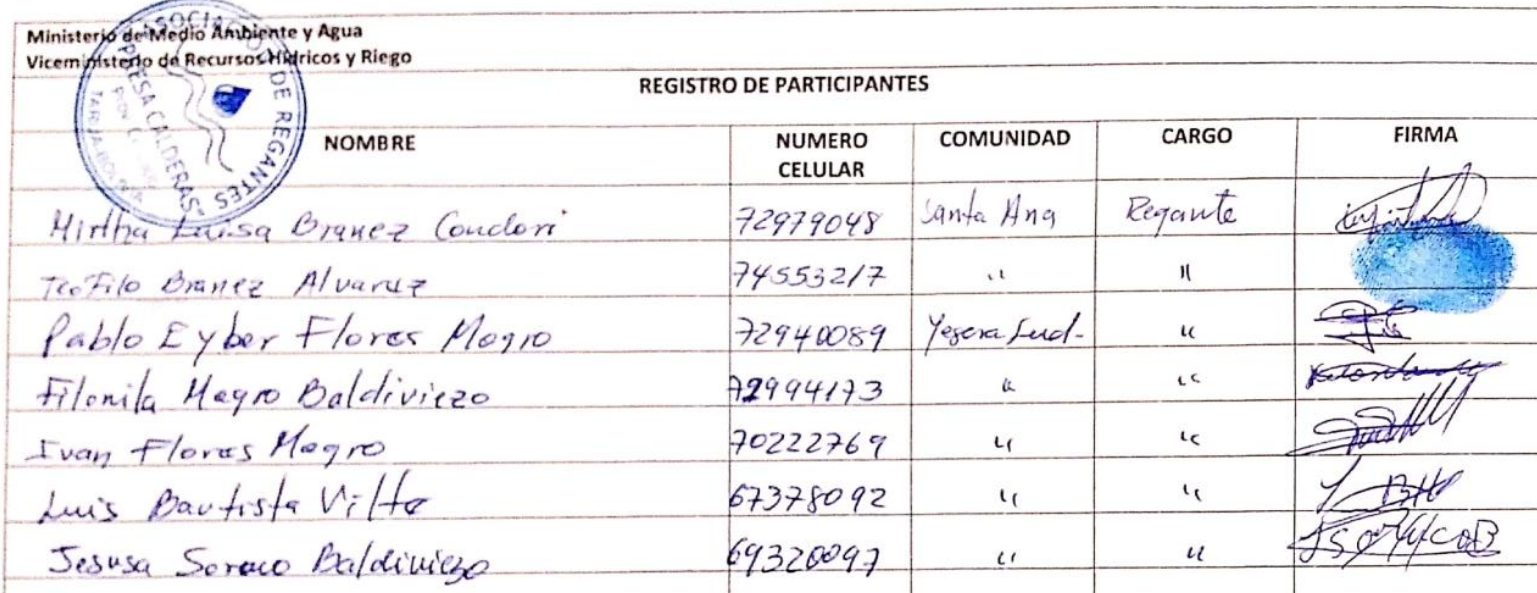 Ministerio de Medio Ambiente y Agua
Viceministerio de Recursos Hídricos y Riego
ASOCIACION DE REGANTES
PRESA CALDERAS
TARIJA-BOLIVIA
REGISTRO DE PARTICIPANTES
NOMBRE NUMERO CELULAR COMUNIDAD CARGO FIRMA
Mirtha Luisa Branez Condori 72979048 Santa Ana Regante
Teofilo Branez Alvarez 74553217 " "
Pablo Eyber Flores Mogro 72940089 Yesera Sud- "
Filonila Mogro Baldiviezo 72994173 " "
Ivan Flores Mogro 70222769 " "
Luis Bautista Vilte 67378092 " "
Jesusa Soraco Baldiviezo 69320097 " "